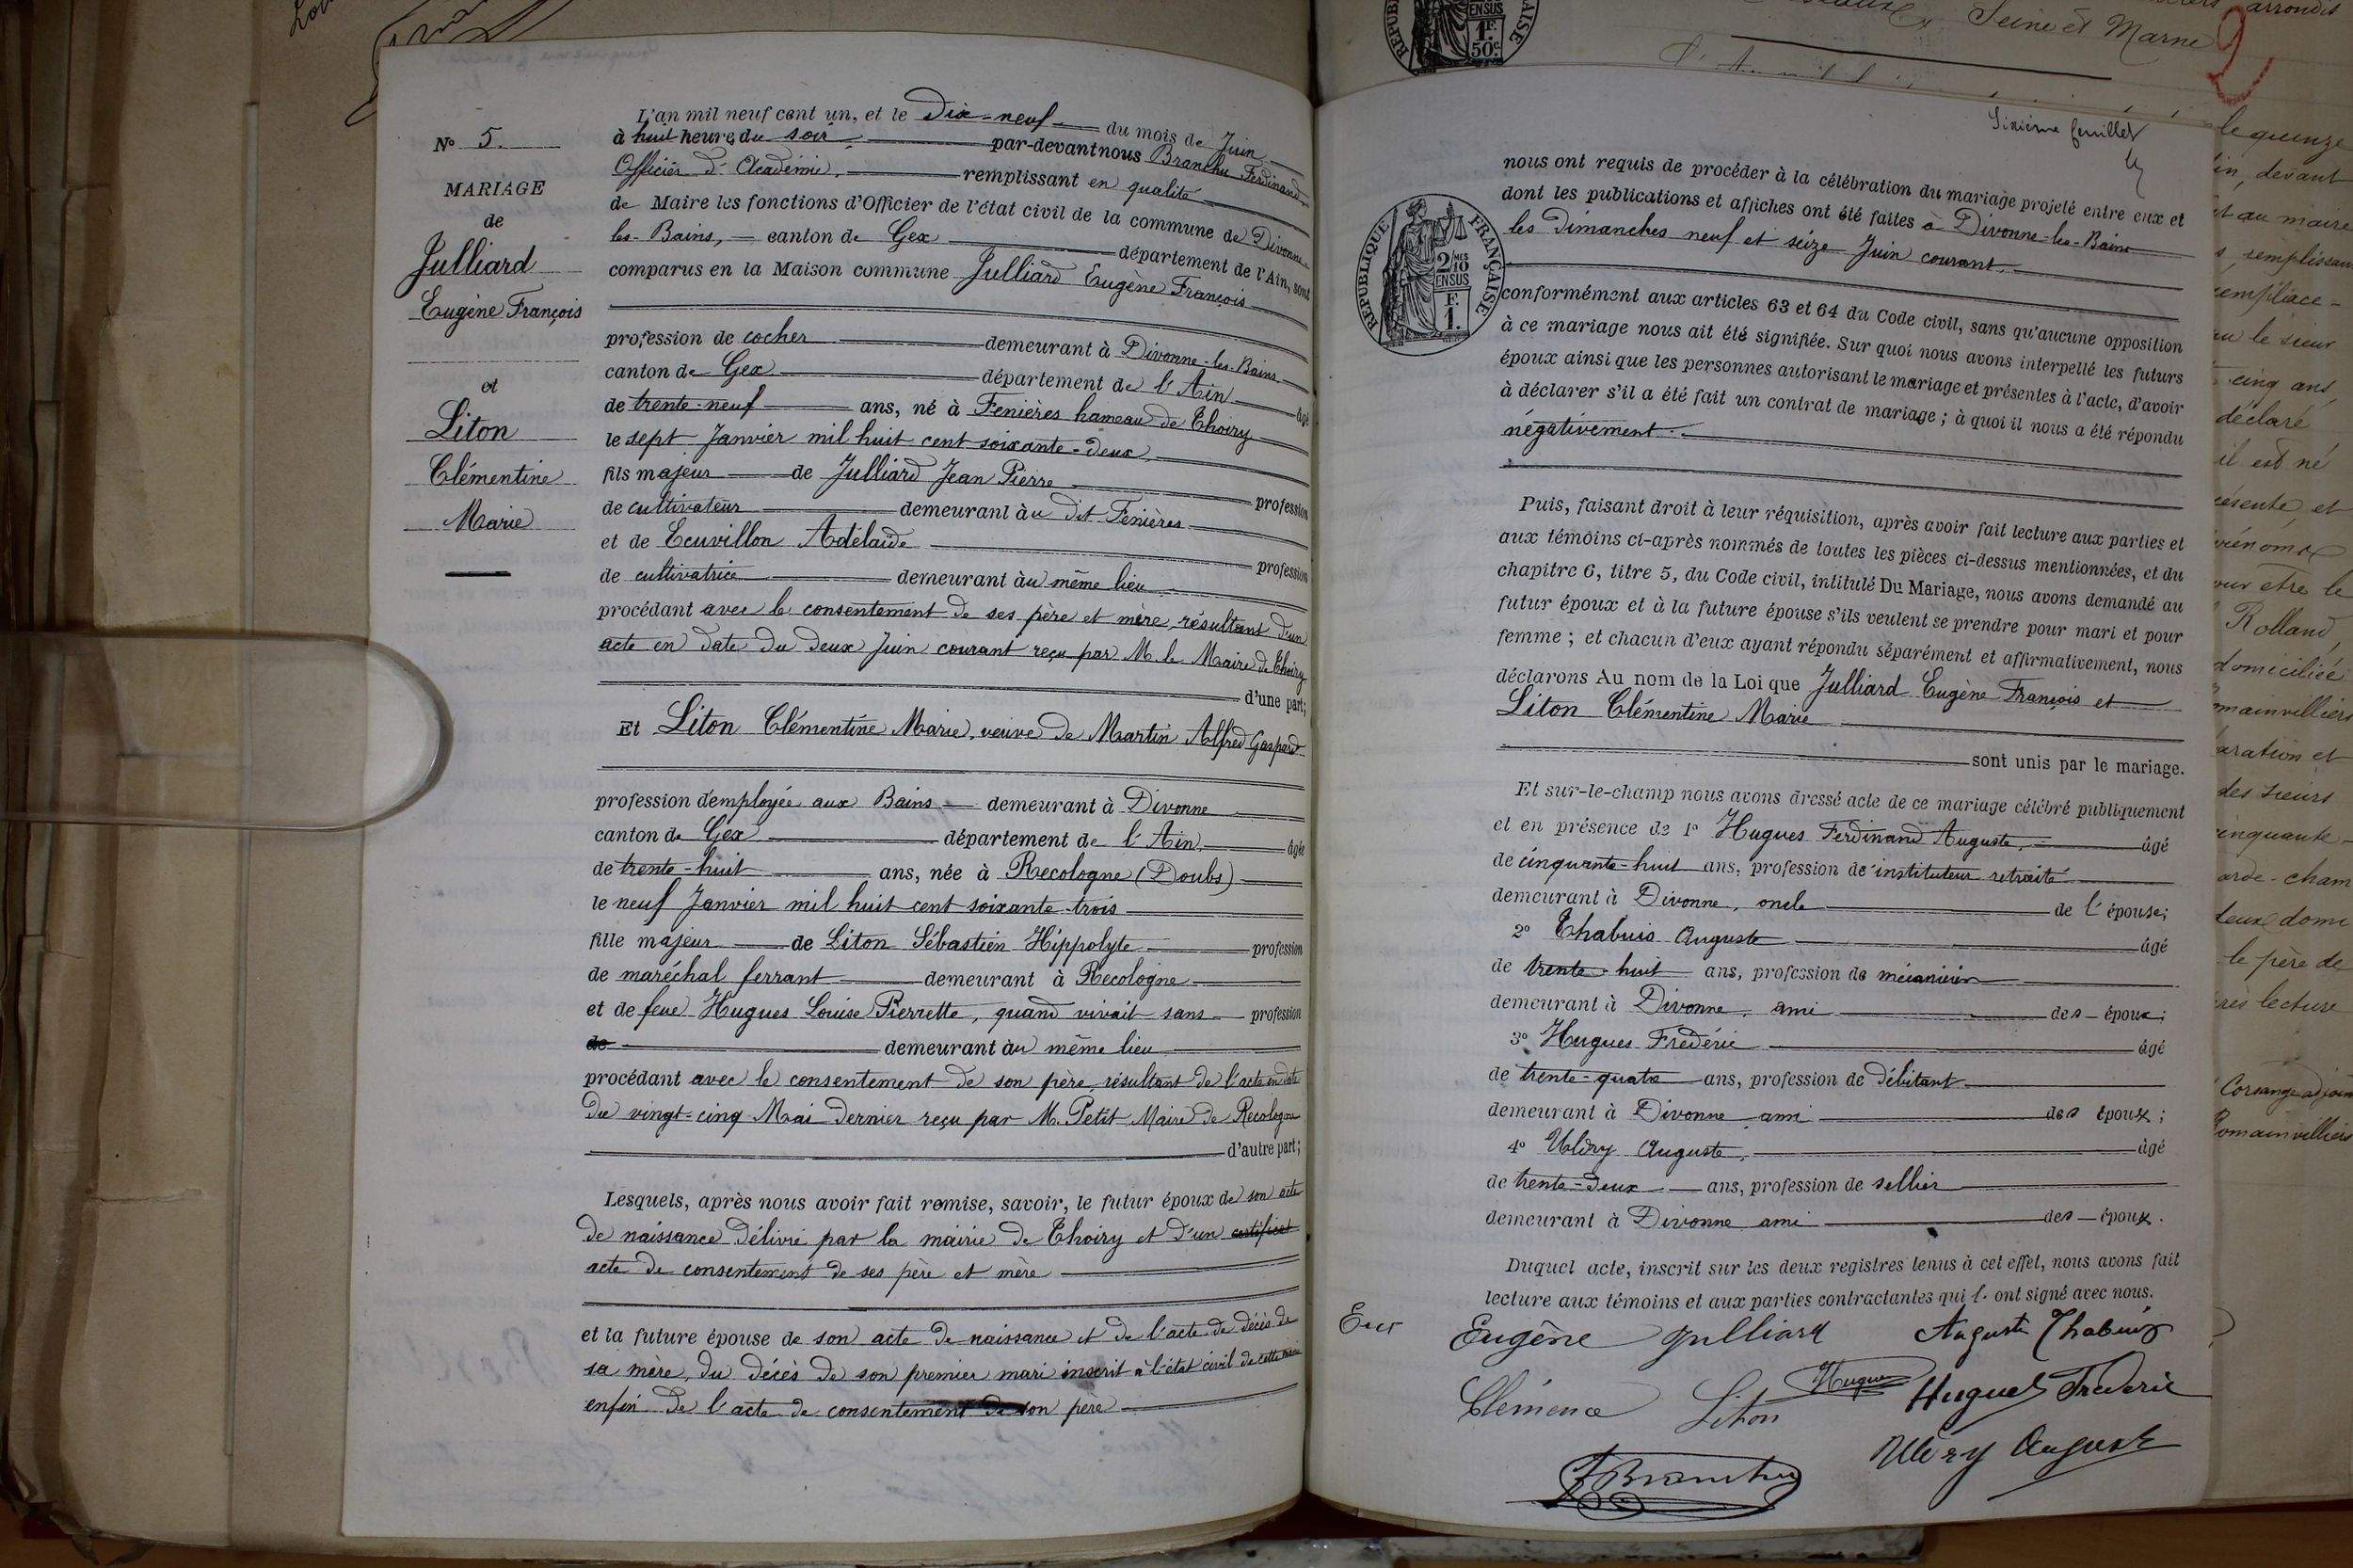 N° 5.
MARIAGE
de
Julliard
Eugène François
et
Liton
Clémentine
Marie
L'an mil neuf cent un, et le Dix-neuf du mois de Juin
à huit heures du soir par-devant nous Branchu Ferdinand
Officier d'Académie, remplissant en qualité
de Maire les fonctions d'Officier de l'état civil de la commune de Divonne
les-Bains, canton de Gex département de l'Ain, sont
comparus en la Maison commune Julliard Eugène François
profession de cocher demeurant à Divonne-les-Bains
canton de Gex département de l'Ain âgé
de trente-neuf ans, né à Fenières hameau de Thoiry
le sept Janvier mil huit cent soixante-deux
fils majeur de Julliard Jean Pierre profession
de cultivateur demeurant àu dit Fenières
et de Ecuvillon Adélaïde profession
de cultivatrice demeurant àu même lieu
procédant avec le consentement de ses père et mère, résultant d'un
acte en date du deux Juin courant reçu par M. le Maire de Thoiry
d'une part;
Et Liton Clémentine Marie, veuve de Martin Alfred Gaspard
profession d'employée aux Bains demeurant à Divonne
canton de Gex département de l'Ain âgée
de trente-huit ans, née à Recologne (Doubs)
le neuf Janvier mil huit cent soixante-trois
fille majeur de Liton Sébastien Hippolyte profession
de maréchal ferrant demeurant à Recologne
et de feue Hugues Louise Pierrette, quand vivait sans profession
de demeurant àu même lieu
procédant avec le consentement de son père, résultant de l'acte en date
du vingt-cinq Mai dernier reçu par M. Petit Maire de Recologne
d'autre part;
Lesquels, après nous avoir fait remise, savoir, le futur époux de son acte
de naissance délivré par la mairie de Thoiry et d'un certificat
acte de consentement de ses père et mère
et la future épouse de son acte de naissance et de l'acte de décès de
sa mère, du décès de son premier mari inscrit à l'état civil de cette mairie
enfin de l'acte de consentement de son père
Sixième feuillet
nous ont requis de procéder à la célébration du mariage projeté entre eux et
dont les publications et affiches ont été faites à Divonne-les-Bains
les Dimanches neuf et seize Juin courant.
RÉPUBLIQUE FRANÇAISE
2/10 MES
EN SUS
1 F.
conformément aux articles 63 et 64 du Code civil, sans qu'aucune opposition
à ce mariage nous ait été signifiée. Sur quoi nous avons interpellé les futurs
époux ainsi que les personnes autorisant le mariage et présentes à l'acte, d'avoir
à déclarer s'il a été fait un contrat de mariage ; à quoi il nous a été répondu
négativement.
Puis, faisant droit à leur réquisition, après avoir fait lecture aux parties et
aux témoins ci-après nommés de toutes les pièces ci-dessus mentionnées, et du
chapitre 6, titre 5, du Code civil, intitulé Du Mariage, nous avons demandé au
futur époux et à la future épouse s'ils veulent se prendre pour mari et pour
femme ; et chacun d'eux ayant répondu séparément et affirmativement, nous
déclarons Au nom de la Loi que Julliard Eugène François et
Liton Clémentine Marie
sont unis par le mariage.
Et sur-le-champ nous avons dressé acte de ce mariage célébré publiquement
et en présence de 1° Hugues Ferdinand Auguste, âgé
de cinquante-huit ans, profession de instituteur retraité
demeurant à Divonne, oncle de l'épouse;
2° Thabuis Auguste âgé
de trente-huit ans, profession de mécanicien
demeurant à Divonne, ami des époux;
3° Hugues Frédéric âgé
de trente-quatre ans, profession de débitant
demeurant à Divonne ami des époux;
4° Uldry Auguste, âgé
de trente-deux ans, profession de sellier
demeurant à Divonne ami des époux.
Duquel acte, inscrit sur les deux registres tenus à cet effet, nous avons fait
lecture aux témoins et aux parties contractantes qui l'ont signé avec nous.
Eugène Julliard Auguste Thabuis
Clémence Liton Hugues Hugues Frédéric
Uldry Auguste
F Branchu
EN SUS
1 F.
50 c.
Seine et Marne
arrondis
2
le quinze
devant
et au maire
remplissan
cinq ans
déclaré
il est né
vous être le
Rolland
domiciliée
des sieurs
cinquante-
le père de
lecture